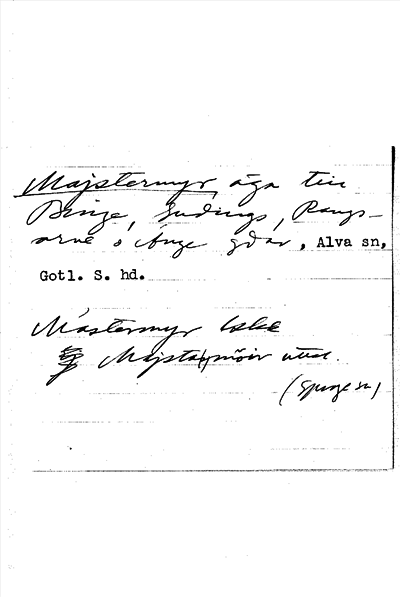 Majstermyr, äga till
Binge, Gudings, Rangs-
arve o Änge gdar, Alva sn,
Gotl. S. hd.
Mästermyr
Majsta(r)möir uttal.
(Sproge sn)